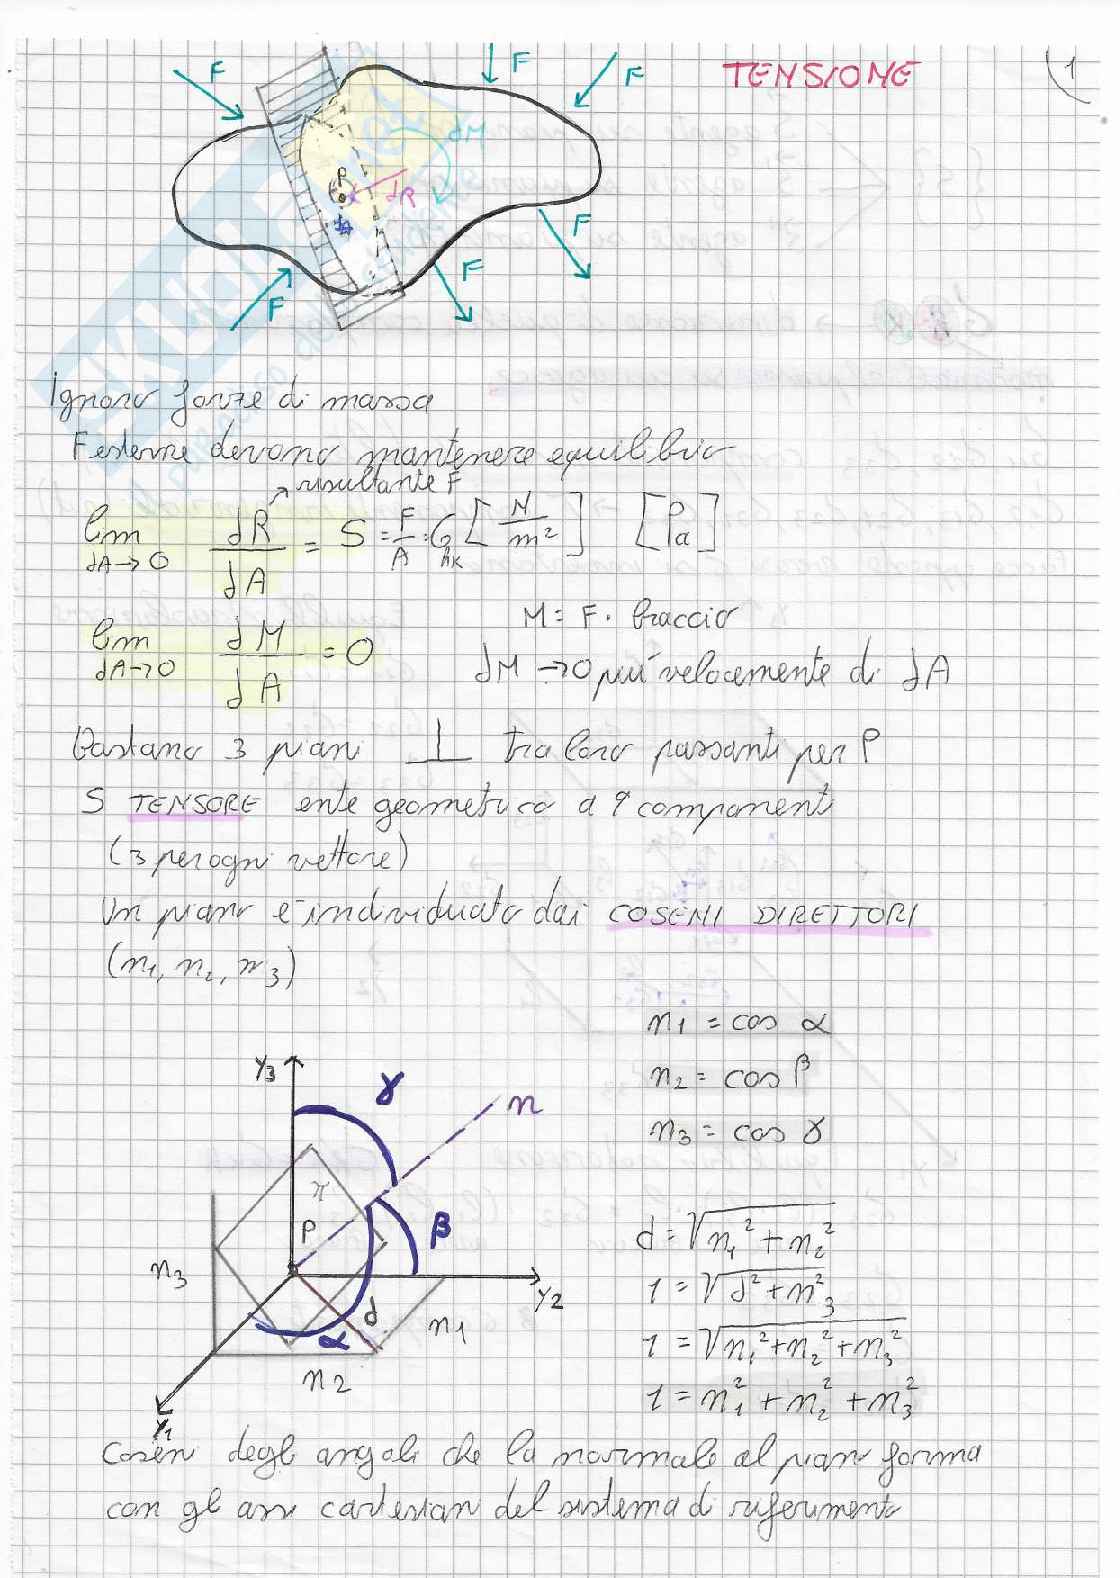 TENSIONE
1
F
F
F
F
F
F
F
dM
P
dR
Ignoro forze di massa
F esterne devono mantenere equilibrio
→ risultante F
lim dA→0 dR/dA = S = F/A = σhk [N/m²] [Pa]
lim dA→0 dM/dA = 0
M = F · braccio
dM → 0 più velocemente di dA
Bastano 3 piani ⊥ tra loro passanti per P
S TENSORE ente geometrico a 9 componenti
(3 per ogni vettore)
Un piano è individuato dai COSENI DIRETTORI
(n1, n2, n3)
n1 = cos α
n2 = cos β
n3 = cos γ
Y3
γ
n
π
P
β
n3
Y2
d
n1
α
n2
Y1
d = √n1² + n2²
1 = √d² + n3²
1 = √n1² + n2² + n3²
1 = n1² + n2² + n3²
Coseni degli angoli che la normale al piano forma
con gli assi cartesiani del sistema di riferimento